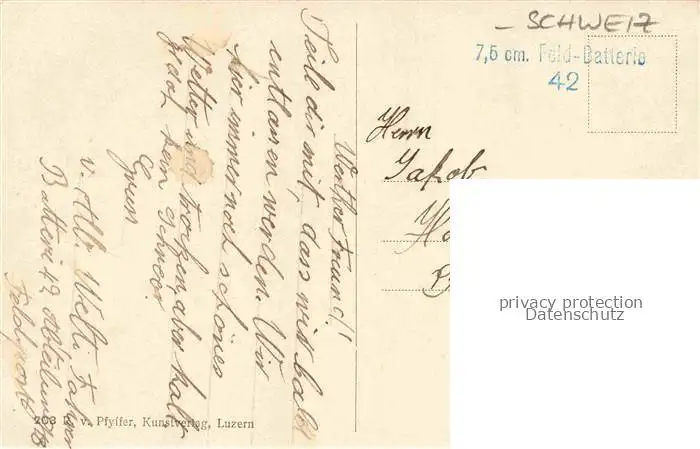 - SCHWEIZ
7,5 cm. Feld-Batterie
42
Herrn
Jakob
privacy protection
Datenschutz
Werther Freund!
Teile dir mit, dass wir bald
entlassen werden. Wir
hier immer noch schönes
Wetter und trocken, aber kalt
ganz kein Schnee.
Gruss
v. Alb. Welti. Fahrer
Batterie 42 Abteilung
Feldpost
203 E. v. Pfyffer, Kunstverlag, Luzern